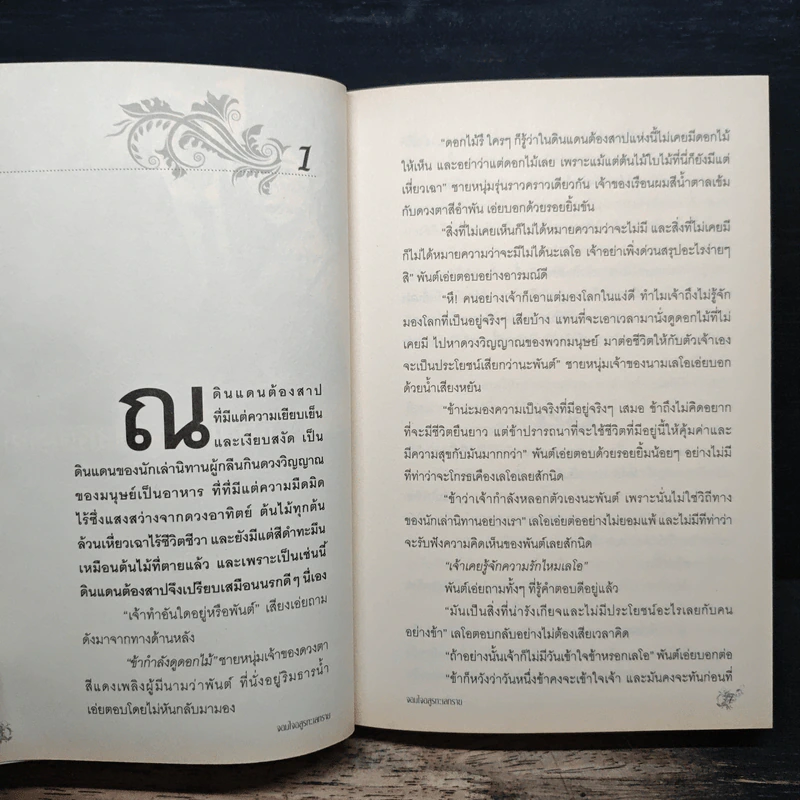 1
ณ ดินแดนต้องสาป
ที่มีแต่ความเยียบเย็น
และเงียบสงัด เป็น
ดินแดนของนักเล่านิทานผู้กลืนกินดวงวิญญาณ
ของมนุษย์เป็นอาหาร ที่ที่มีแต่ความมืดมิด
ไร้ซึ่งแสงสว่างจากดวงอาทิตย์ ต้นไม้ทุกต้น
ล้วนเหี่ยวเฉาไร้ชีวิตชีวา และยังมีแต่สีดำทะมึน
เหมือนต้นไม้ที่ตายแล้ว และเพราะเป็นเช่นนี้
ดินแดนต้องสาปจึงเปรียบเสมือนนรกดีๆ นี่เอง
"เจ้าทำอันใดอยู่หรือพันต์" เสียงเอ่ยถาม
ดังมาจากทางด้านหลัง
"ข้ากำลังดูดอกไม้" ชายหนุ่มเจ้าของดวงตา
สีแดงเพลิงผู้มีนามว่าพันต์ ที่นั่งอยู่ริมธารน้ำ
เอ่ยตอบโดยไม่หันกลับมามอง
จอมใจอสูรทะเลทราย
"ดอกไม้รึ ใครๆ ก็รู้ว่าในดินแดนต้องสาปแห่งนี้ไม่เคยมีดอกไม้
ให้เห็น และอย่าว่าแต่ดอกไม้เลย เพราะแม้แต่ต้นไม้ใบไม้ที่นี่ก็ยังมีแต่
เหี่ยวเฉา" ชายหนุ่มรุ่นราวคราวเดียวกัน เจ้าของเรือนผมสีน้ำตาลเข้ม
กับดวงตาสีอำพัน เอ่ยบอกด้วยรอยยิ้มขัน
"สิ่งที่ไม่เคยเห็นก็ไม่ได้หมายความว่าจะไม่มี และสิ่งที่ไม่เคยมี
ก็ไม่ได้หมายความว่าจะมีไม่ได้นะเลโอ เจ้าอย่าเพิ่งด่วนสรุปอะไรง่ายๆ
สิ" พันต์เอ่ยตอบอย่างอารมณ์ดี
"หึ! คนอย่างเจ้าก็เอาแต่มองโลกในแง่ดี ทำไมเจ้าถึงไม่รู้จัก
มองโลกที่เป็นอยู่จริงๆ เสียบ้าง แทนที่จะเอาเวลามานั่งดูดอกไม้ที่ไม่
เคยมี ไปหาดวงวิญญาณของพวกมนุษย์ มาต่อชีวิตให้กับตัวเจ้าเอง
จะเป็นประโยชน์เสียกว่านะพันต์" ชายหนุ่มเจ้าของนามเลโอเอ่ยบอก
ด้วยน้ำเสียงหยัน
"ข้าน่ะมองความเป็นจริงที่มีอยู่จริงๆ เสมอ ข้าถึงไม่คิดอยาก
ที่จะมีชีวิตยืนยาว แต่ข้าปรารถนาที่จะใช้ชีวิตที่มีอยู่นี้ให้คุ้มค่าและ
มีความสุขกับมันมากกว่า" พันต์เอ่ยตอบด้วยรอยยิ้มน้อยๆ อย่างไม่มี
ทีท่าว่าจะโกรธเคืองเลโอเลยสักนิด
"ข้าว่าเจ้ากำลังหลอกตัวเองนะพันต์ เพราะนั่นไม่ใช่วิถีทาง
ของนักเล่านิทานอย่างเรา" เลโอเอ่ยต่ออย่างไม่ยอมแพ้ และไม่มีทีท่าว่า
จะรับฟังความคิดเห็นของพันต์เลยสักนิด
"เจ้าเคยรู้จักความรักไหมเลโอ"
พันต์เอ่ยถามทั้งๆ ที่รู้คำตอบดีอยู่แล้ว
"มันเป็นสิ่งที่น่ารังเกียจและไม่มีประโยชน์อะไรเลยกับคน
อย่างข้า" เลโอตอบกลับอย่างไม่ต้องเสียเวลาคิด
"ถ้าอย่างนั้นเจ้าก็ไม่มีวันเข้าใจข้าหรอกเลโอ" พันต์เอ่ยบอกต่อ
"ข้าก็หวังว่าวันหนึ่งข้าคงจะเข้าใจเจ้า และมันคงจะทันก่อนที่
จอมใจอสูรทะเลทราย